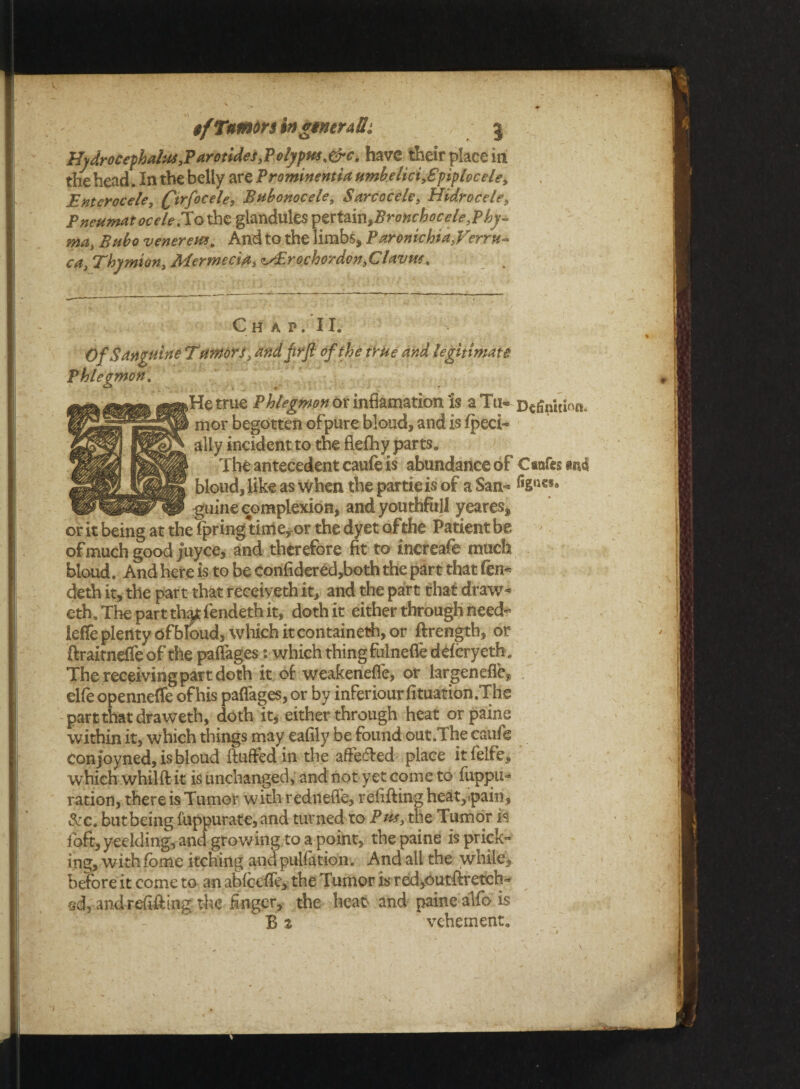 of Tumors in generall: 3
Hydrocephalus,Parotides,Polypus,&c. have their place in
the head. In the belly are Prominentia umbelici,Epiplocele,
Enterocele, Cirsocele, Bubonocele, Sarcocele, Hidrocele,
Pneumatocele.To the glandules pertain,Bronchocele,Phy-
ma, Bubo venereus. And to the limbs, Paronichia,Verru-
ca, Thymion, Mermecia, Æerochordon,Clavus.
CHAP. II.
Of Sanguine Tumors, and first of the true and legitimate
Phlegmon.
THe true Phlegmon or inflamation is a Tu- Definition.
mor begotten of pure bloud, and is speci-
ally incident to the fleshy parts.
The antecedent cause is abundance of Causes and
bloud, like as when the partie is of a San- signes.
guine complexion, and youthfull yeares,
or it being at the spring time, or the dyet of the Patient be
of much good juyce, and therefore fit to increase much
bloud. And here is to be considered,both the part that sen-
deth it, the part that receiveth it, and the part that draw-
eth. The part that sendeth it, doth it either through need-
lesse plenty of bloud, which it containeth, or strength, or
straitnesse of the passages: which thing fulnesse descryeth.
The receiving part doth it of weakenesse, or largenesse,
else opennesse of his passages, or by inferiour situation.The
part that draweth, doth it, either through heat or paine
within it, which things may easily be found out.The cause
conjoyned, is bloud stuffed in the affected place it selfe,
which whilst it is unchanged, and not yet come to suppu-
ration, there is Tumor with rednesse, resisting heat, pain,
&c. but being suppurate, and turned to Pus, the Tumor is
soft, yeelding, and growing to a point, the paine is prick-
ing, with some itching and pulsation. And all the while,
before it come to an abscesse, the Tumor is red,outstretch-
ed, and resisting the finger, the heat and paine also is
B 2 vehement.